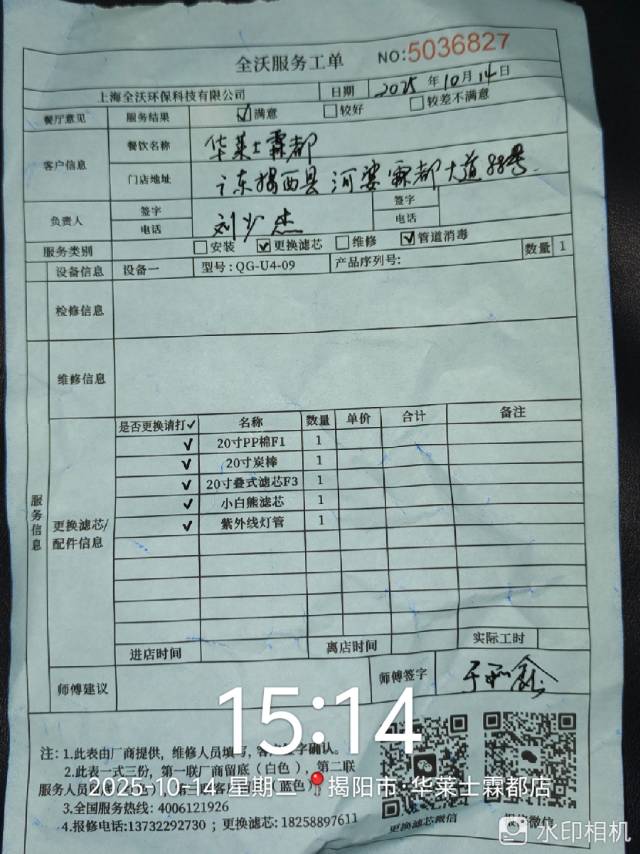 全沃服务工单
NO:5036827
上海全沃环保科技有限公司 日期 2025年10月14日
餐厅意见 服务结果 ☑满意 □较好 □较差不满意
客户信息 餐饮名称 华莱士霖都
门店地址 广东揭西县河婆霖都大道88号
负责人 签字 电话 刘少杰 签字 电话
服务类别 □安装 ☑更换滤芯 □维修 ☑管道消毒
设备信息 设备一 型号:QG-U4-09 产品序列号: 数量 1
检修信息
维修信息
服务信息
更换滤芯/配件信息
是否更换请打✓ 名称 数量 单价 合计 备注
✓ 20寸PP棉F1 1
✓ 20寸炭棒 1
✓ 20寸叠式滤芯F3 1
✓ 小白熊滤芯 1
✓ 紫外线灯管 1
进店时间 离店时间 实际工时
师傅建议 师傅签字
15:14
注:1.此表由厂商提供,维修人员填写,客 字确认。
2.此表一式三份,第一联厂商留底(白色),第二联
服务人员 (蓝色)
2025-10-14 星期二 揭阳市·华莱士霖都店
3.全国服务热线:4006121926
4.报修电话:13732292730;更换滤芯:18258897611
更换滤芯微信
报修微信
水印相机